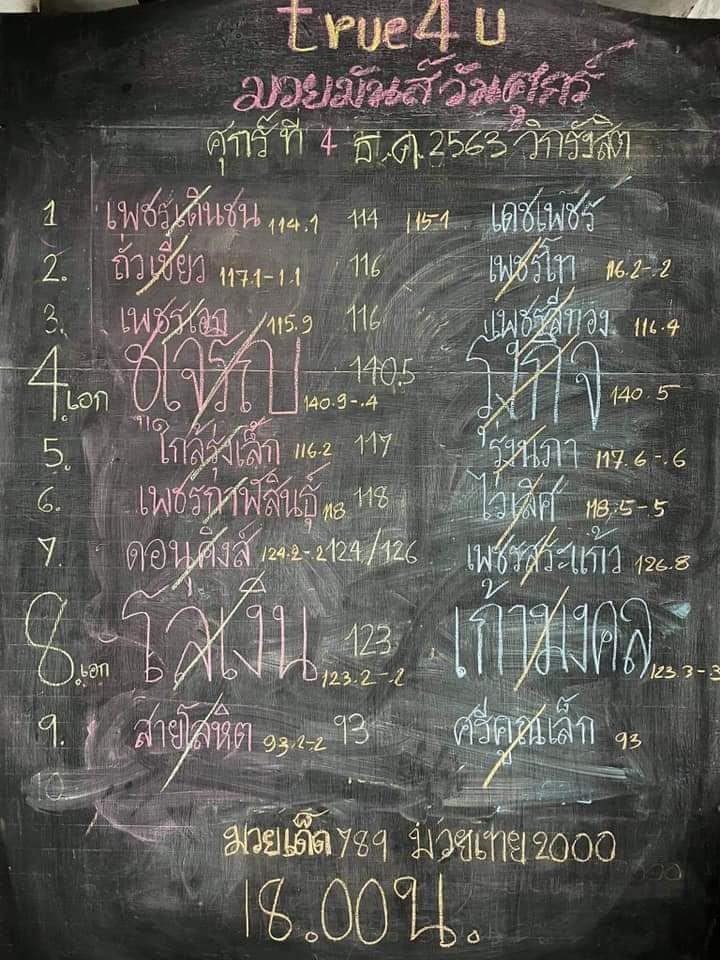 true4u
มวยมันส์วันศุกร์
ศุกร์ที่ 4 ธ.ค. 2563 วิกรังสิต
1 เพชรเดินชน 114.1 114 115.1 เดชเพชร
2. ถั่วเขียว 117.1-1.1 116 เพชรโท 116.2-.2
3. เพชรเอก 115.9 116 เพชรสีทอง 116.4
4.เอก ชูใจรัก 140.9-.4 140.5 ภูกิจ 140.5
5. ใกล้รุ่งเล็ก 116.2 117 รุ่งนภา 117.6-.6
6. เพชรกาฬสินธุ์ 118 118 ไวเลิศ 118.5-.5
7. ดอนุคิงส์ 124.2-.2 124/126 เพชรสระแก้ว 126.8
8.เอก โลเงิน 123.2-.2 123 เก้ามงคล 123.3-3
9. สายโลหิต 93.2-2 93 ศรีคูณเล็ก 93
10
มวยเด็ด789 มวยไทย2000
18.00น.